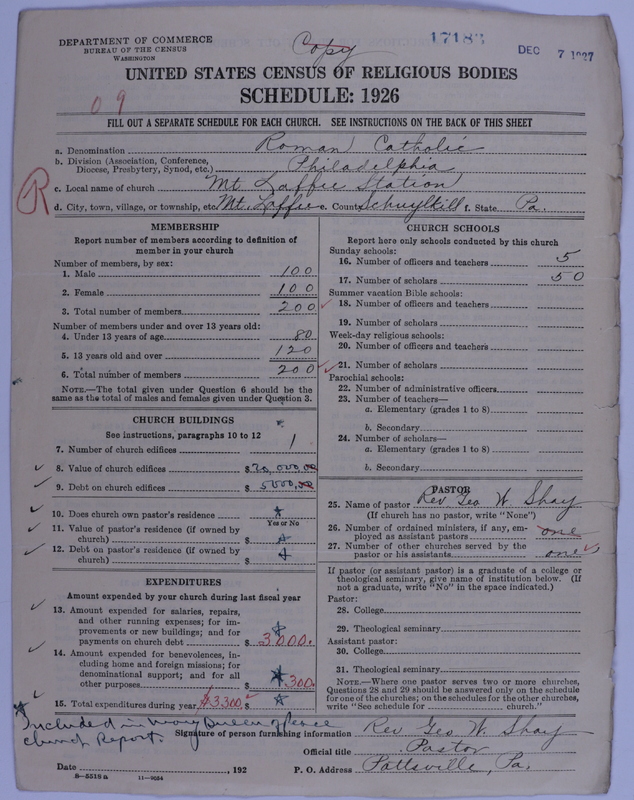 DEPARTMENT OF COMMERCE
BUREAU OF THE CENSUS
WASHINGTON
Copy
17183
DEC 7 1927
UNITED STATES CENSUS OF RELIGIOUS BODIES
SCHEDULE: 1926
09
FILL OUT A SEPARATE SCHEDULE FOR EACH CHURCH. SEE INSTRUCTIONS ON THE BACK OF THIS SHEET
a. Denomination Roman Catholic
b. Division (Association, Conference, Diocese, Presbytery, Synod, etc.) Philadelphia
R
c. Local name of church Mt. Laffee Station
d. City, town, village, or township, etc. Mt. Laffee e. County Schuylkill f. State Pa.
MEMBERSHIP
Report number of members according to definition of
member in your church
Number of members, by sex:
1. Male 100
2. Female 100
3. Total number of members 200 ✓
Number of members under and over 13 years old:
4. Under 13 years of age 80
5. 13 years old and over 120
6. Total number of members 200 ✓
NOTE.—The total given under Question 6 should be the
same as the total of males and females given under Question 3.
CHURCH BUILDINGS
See instructions, paragraphs 10 to 12
7. Number of church edifices 1
8. Value of church edifices $20,000.00
9. Debt on church edifices $ 5000.00
10. Does church own pastor's residence *
Yes or No
11. Value of pastor's residence (if owned by
church) $ *
12. Debt on pastor's residence (if owned by
church) $ *
EXPENDITURES
Amount expended by your church during last fiscal year
13. Amount expended for salaries, repairs,
and other running expenses; for im-
provements or new buildings; and for
payments on church debt $ * 3000.
14. Amount expended for benevolences, in-
cluding home and foreign missions; for
denominational support; and for all
other purposes $ * 300.
15. Total expenditures during year $3,300 ✓ $ *
* Included in Mary Queen of Peace
church Report.
CHURCH SCHOOLS
Report here only schools conducted by this church
Sunday schools:
16. Number of officers and teachers 5
17. Number of scholars 50
Summer vacation Bible schools:
18. Number of officers and teachers
19. Number of scholars
Week-day religious schools:
20. Number of officers and teachers
21. Number of scholars
Parochial schools:
22. Number of administrative officers
23. Number of teachers—
a. Elementary (grades 1 to 8)
b. Secondary
24. Number of scholars—
a. Elementary (grades 1 to 8)
b. Secondary
PASTOR
25. Name of pastor Rev. Geo W. Shay
(If church has no pastor, write "None")
26. Number of ordained ministers, if any, em-
ployed as assistant pastors one
27. Number of other churches served by the
pastor or his assistants one ✓
If pastor (or assistant pastor) is a graduate of a college or
theological seminary, give name of institution below. (If
not a graduate, write "No" in the space indicated.)
Pastor:
28. College
29. Theological seminary
Assistant pastor:
30. College
31. Theological seminary
NOTE.—Where one pastor serves two or more churches,
Questions 28 and 29 should be answered only on the schedule
for one of the churches; on the schedules for the other churches,
write "See schedule for church."
Signature of person furnishing information Rev Geo W. Shay
Official title Pastor
Date , 192 P. O. Address Pottsville, Pa.
8—5519 a 11—9554